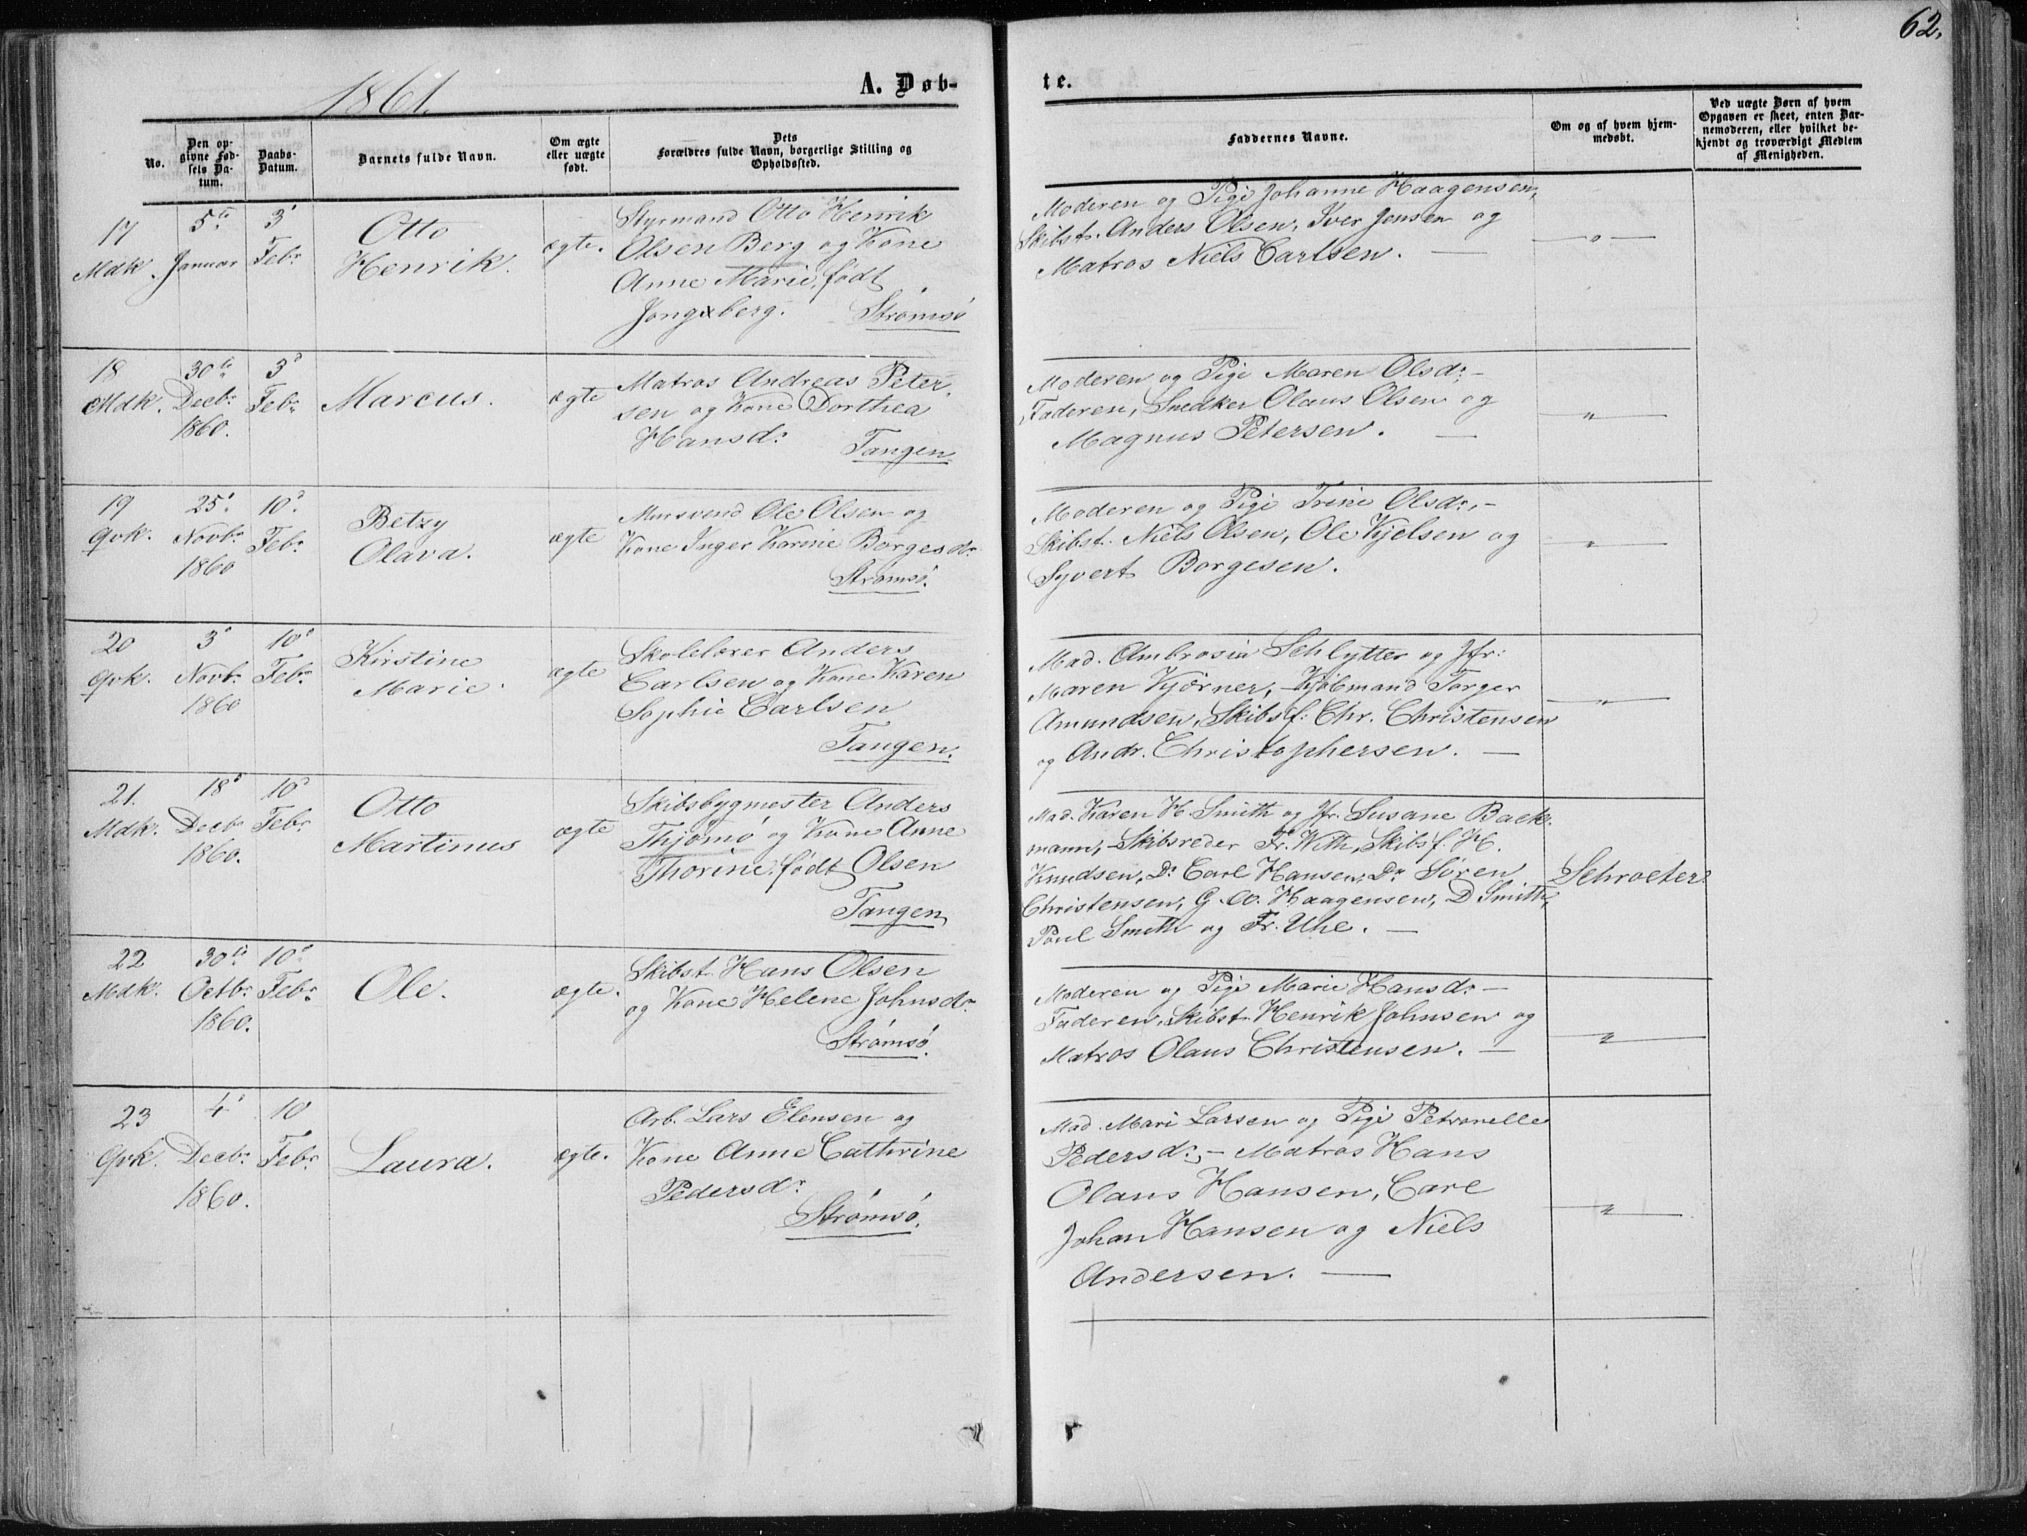 62.
1861.
A. Døb-
te.
No.
Den op-
givne Fød-
sels Da-
tum.
Daabs-
Datum.
Barnets fulde Navn.
Om ægte
eller uægte
født.
Dets
Forældres fulde Navn, borgerlige Stilling og
Opholdssted.
Faddernes Navne.
Om og af hvem hjem-
medøbt.
Ved uægte Børn af hvem
Opgaven er skeet, enten Bar-
nemoderen, eller hvilket be-
kjendt og troværdigt Medlem
af Menigheden.
17
Mdk.
5te
Januar
3die
Febr.
Otto
Henrik.
ægte.
Styrmand Otto Henrik
Olsen Berg og Kone
Anne Marie, født
Jongxberg. Strømsø
Moderen og Pige Johanne Haagensen,
Skibst. Anders Olsen, Iver Jensen og
Matros Niels Carlsen. —
— " —
18
Mdk.
30te
Decbr.
1860.
3die
Febr.
Marcus.
ægte
Matros Andreas Peter-
sen og Kone Dorthea
Hansdr. Tangen
Moderen og Pige Maren Olsdr. –
Faderen, Snedker Olaus Olsen og
Magnus Petersen. —
— " —
19
Qvk.
25de
Novbr.
1860
10de
Febr.
Betzy
Olava.
ægte
Mursvend Ole Olsen og
Kone Inger Karine Borgesdr.
Strømsø.
Moderen og Pige Trine Olsdr., –
Skibst. Niels Olsen, Ole Kjelsen og
Syvert Borgesen.
— " —
20
Qvk.
3die
Novbr.
1860
10de
Febr.
Kirstine
Marie.
ægte
Skolelærer Anders
Carlsen og Kone Karen
Sophie Carlsen
Tangen.
Mad. Ambrosia Schlytter og Jfr:
Maren Kjørner, – Kjøbmand Torger
Amundsen, Skibsf: Chr. Christensen
og Andr. Christophersen. —
— " —
21.
Mdk.
18de
Decbr.
1860.
10de
Febr.
Otto
Martinus
ægte
Skibsbygmester Anders
Thjømø og Kone Anne
Thorine, født Olsen
Tangen
Mad. Karen H. Smith og Jfr. Susane Back-
mann, – Skibsreder Fr. With, Skibsf. H.
Knudsen, Do Carl Hansen, Do Søren
Christensen, G. A. Haagensen, D. Smith,
Poul Smith og Fr. Uhe. —
Schroeter
22
Mdk.
30te
Octbr.
1860.
10de
Febr.
Ole.
ægte.
Skibst. Hans Olsen
og Kone Helene Johnsdr.
Strømsø.
Moderen og Pige Marie Hansdr. –
Faderen, Skibst. Henrik Johnsen og
Matros Olaus Christensen. —
— " —
23
Qvk.
4de
Decbr.
1860.
10
Febr.
Laura.
ægte.
Arb. Lars Elensen og
Kone Anne Cathrine
Pedersdr.
Strømsø.
Mad. Mari Larsen og Pige Petronelle
Pedersdr., – Matros Hans
Olaus Hansen, Carl
Johan Hansen og Niels
Andersen. —
— " —